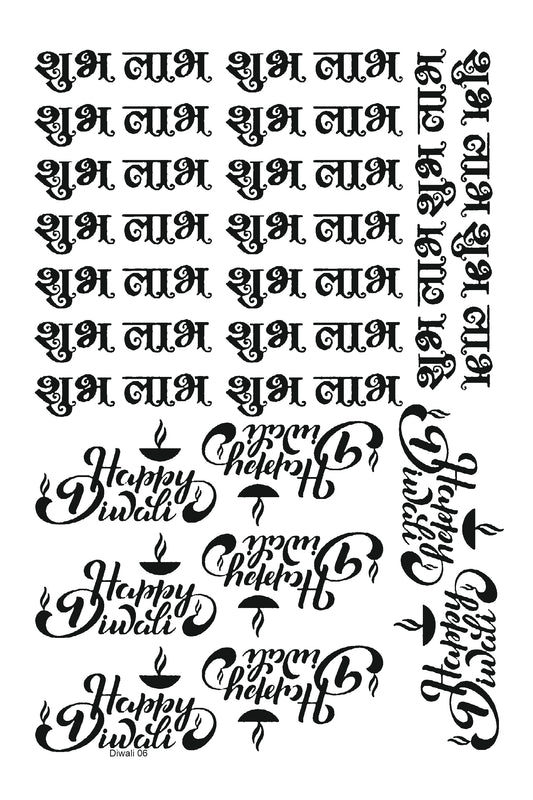 शुभ लाभ शुभ लाभ
शुभ लाभ शुभ लाभ
शुभ लाभ शुभ लाभ
शुभ लाभ शुभ लाभ
शुभ लाभ शुभ लाभ
शुभ लाभ शुभ लाभ
शुभ लाभ शुभ लाभ
शुभ लाभ शुभ लाभ
शुभ लाभ शुभ लाभ
Happy
Diwali
Happy
Diwali
Happy
Diwali
Happy
Diwali
Happy
Diwali
Happy
Diwali
Happy
Diwali
Happy
Diwali
Diwali 06